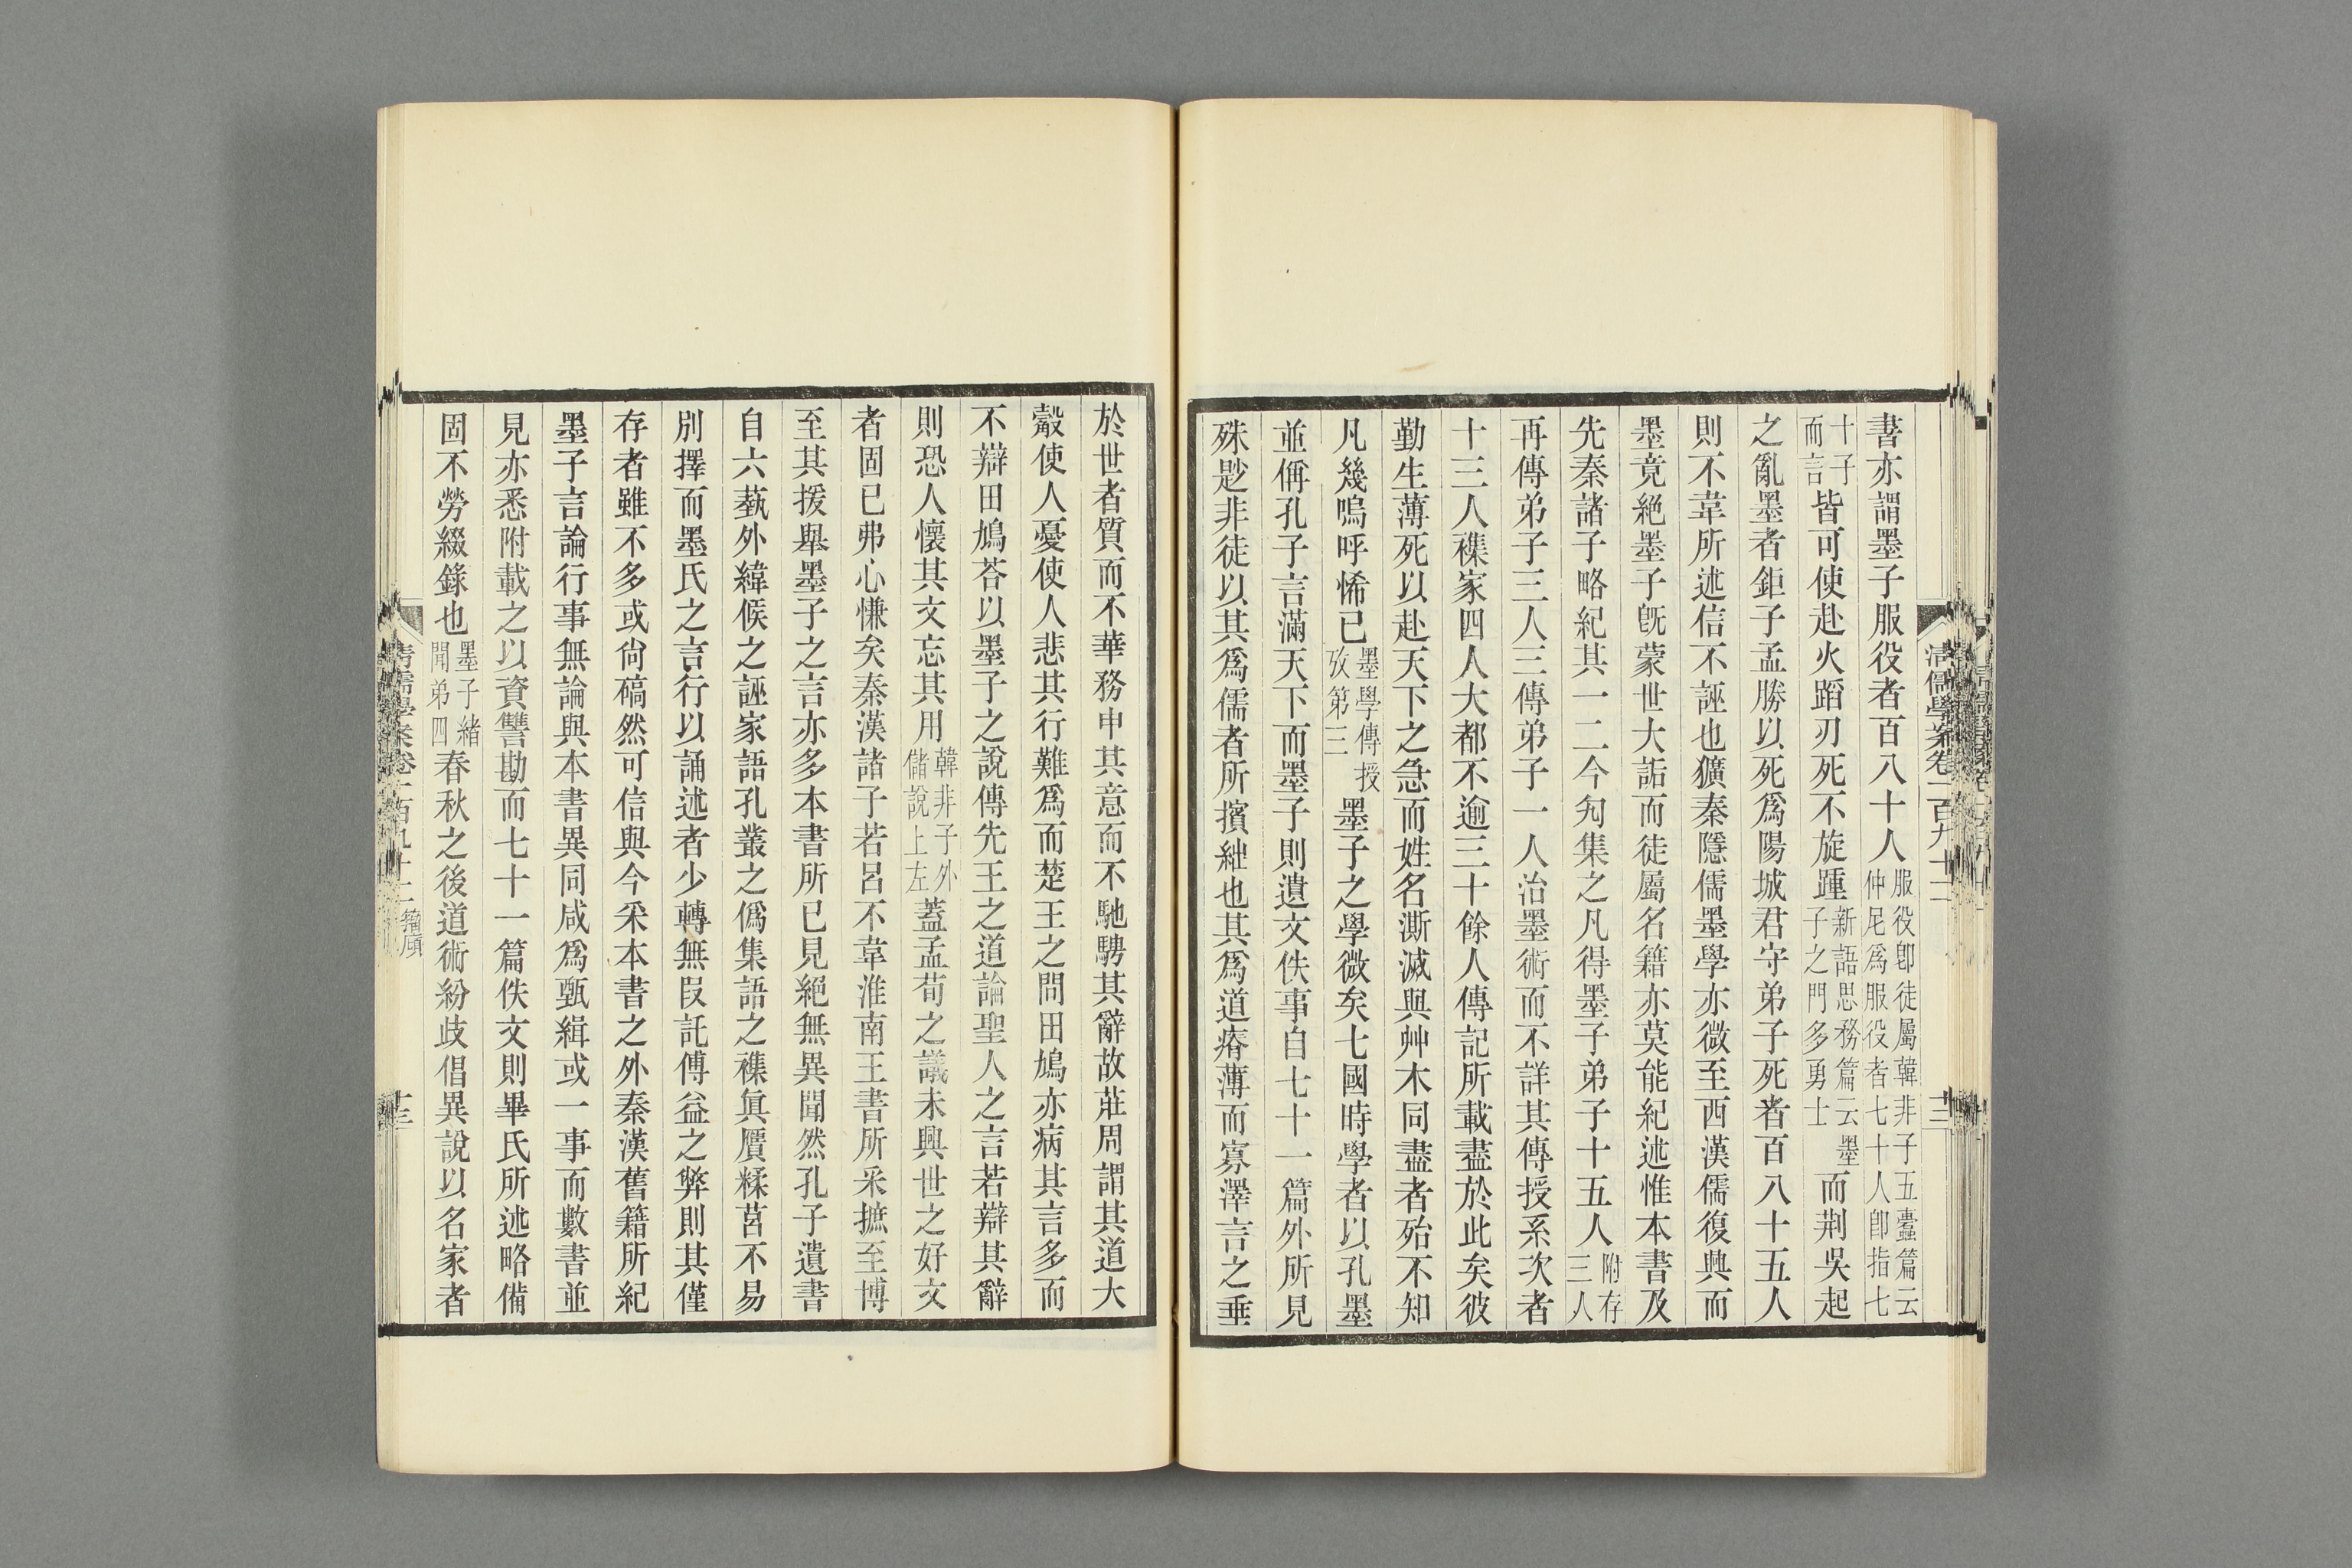 書亦謂墨子服役者百八十人服役卽徒屬韓非子五蠹篇云仲尼爲服役者七十人卽指七
十子而言皆可使赴火蹈刃死不旋踵新語思務篇云墨子之門多勇士而荆吳起
之亂墨者鉅子孟勝以死爲陽城君守弟子死者百八十五人
則不韋所述信不誣也獷秦隱儒墨學亦微至西漢儒復興而
墨竟絕墨子旣蒙世大詬而徒屬名籍亦莫能紀述惟本書及
先秦諸子略紀其一二今勼集之凡得墨子弟子十五人附存三人
再傳弟子三人三傳弟子一人治墨術而不詳其傳授系次者
十三人襍家四人大都不逾三十餘人傳記所載盡於此矣彼
勤生薄死以赴天下之急而姓名澌滅與艸木同盡者殆不知
凡幾嗚呼悕已墨學傳授攷第三墨子之學微矣七國時學者以孔墨
並偁孔子言滿天下而墨子則遺文佚事自七十一篇外所見
殊尟非徒以其爲儒者所擯絀也其爲道瘠薄而寡澤言之垂
清儒學案卷一百九十二
十三
於世者質而不華務申其意而不馳騁其辭故莊周謂其道大
觳使人憂使人悲其行難爲而楚王之問田鳩亦病其言多而
不辯田鳩荅以墨子之說傳先王之道論聖人之言若辯其辭
則恐人懷其文忘其用韓非子外儲說上左蓋孟荀之議未興世之好文
者固已弗心慊矣秦漢諸子若呂不韋淮南王書所采摭至博
至其援舉墨子之言亦多本書所已見絕無異聞然孔子遺書
自六蓺外緯候之誣家語孔叢之僞集語之襍眞贋糅莒不易
別擇而墨氏之言行以誦述者少轉無叚託傅益之弊則其僅
存者雖不多或尙碻然可信與今采本書之外秦漢舊籍所紀
墨子言論行事無論與本書異同咸爲甄緝或一事而數書並
見亦悉附載之以資讐勘而七十一篇佚文則畢氏所述略備
固不勞綴錄也墨子緒聞弟四春秋之後道術紛歧倡異說以名家者
清儒學案卷一百九十二籀廎